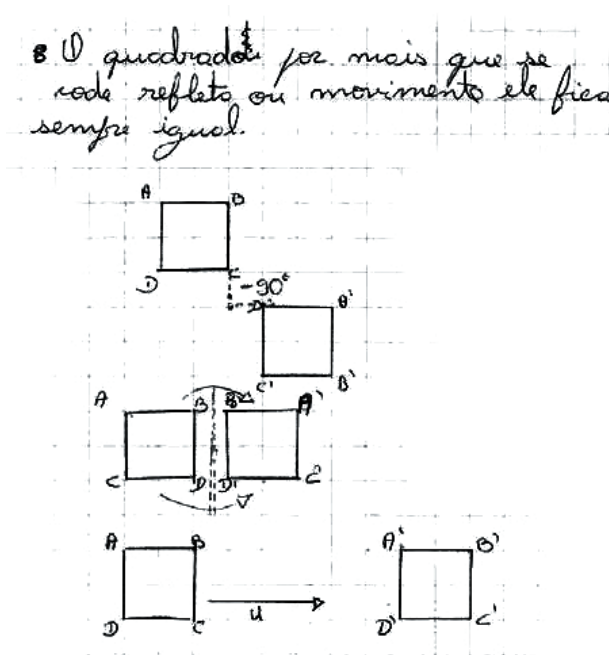 8 O quadrado por mais que se
rode refleta ou movimento ele fica
sempre igual.
A B
D C
-90°
D' A'
C' B'
A B B' A'
C D D' C'
A B A' B'
u
D C D' C'